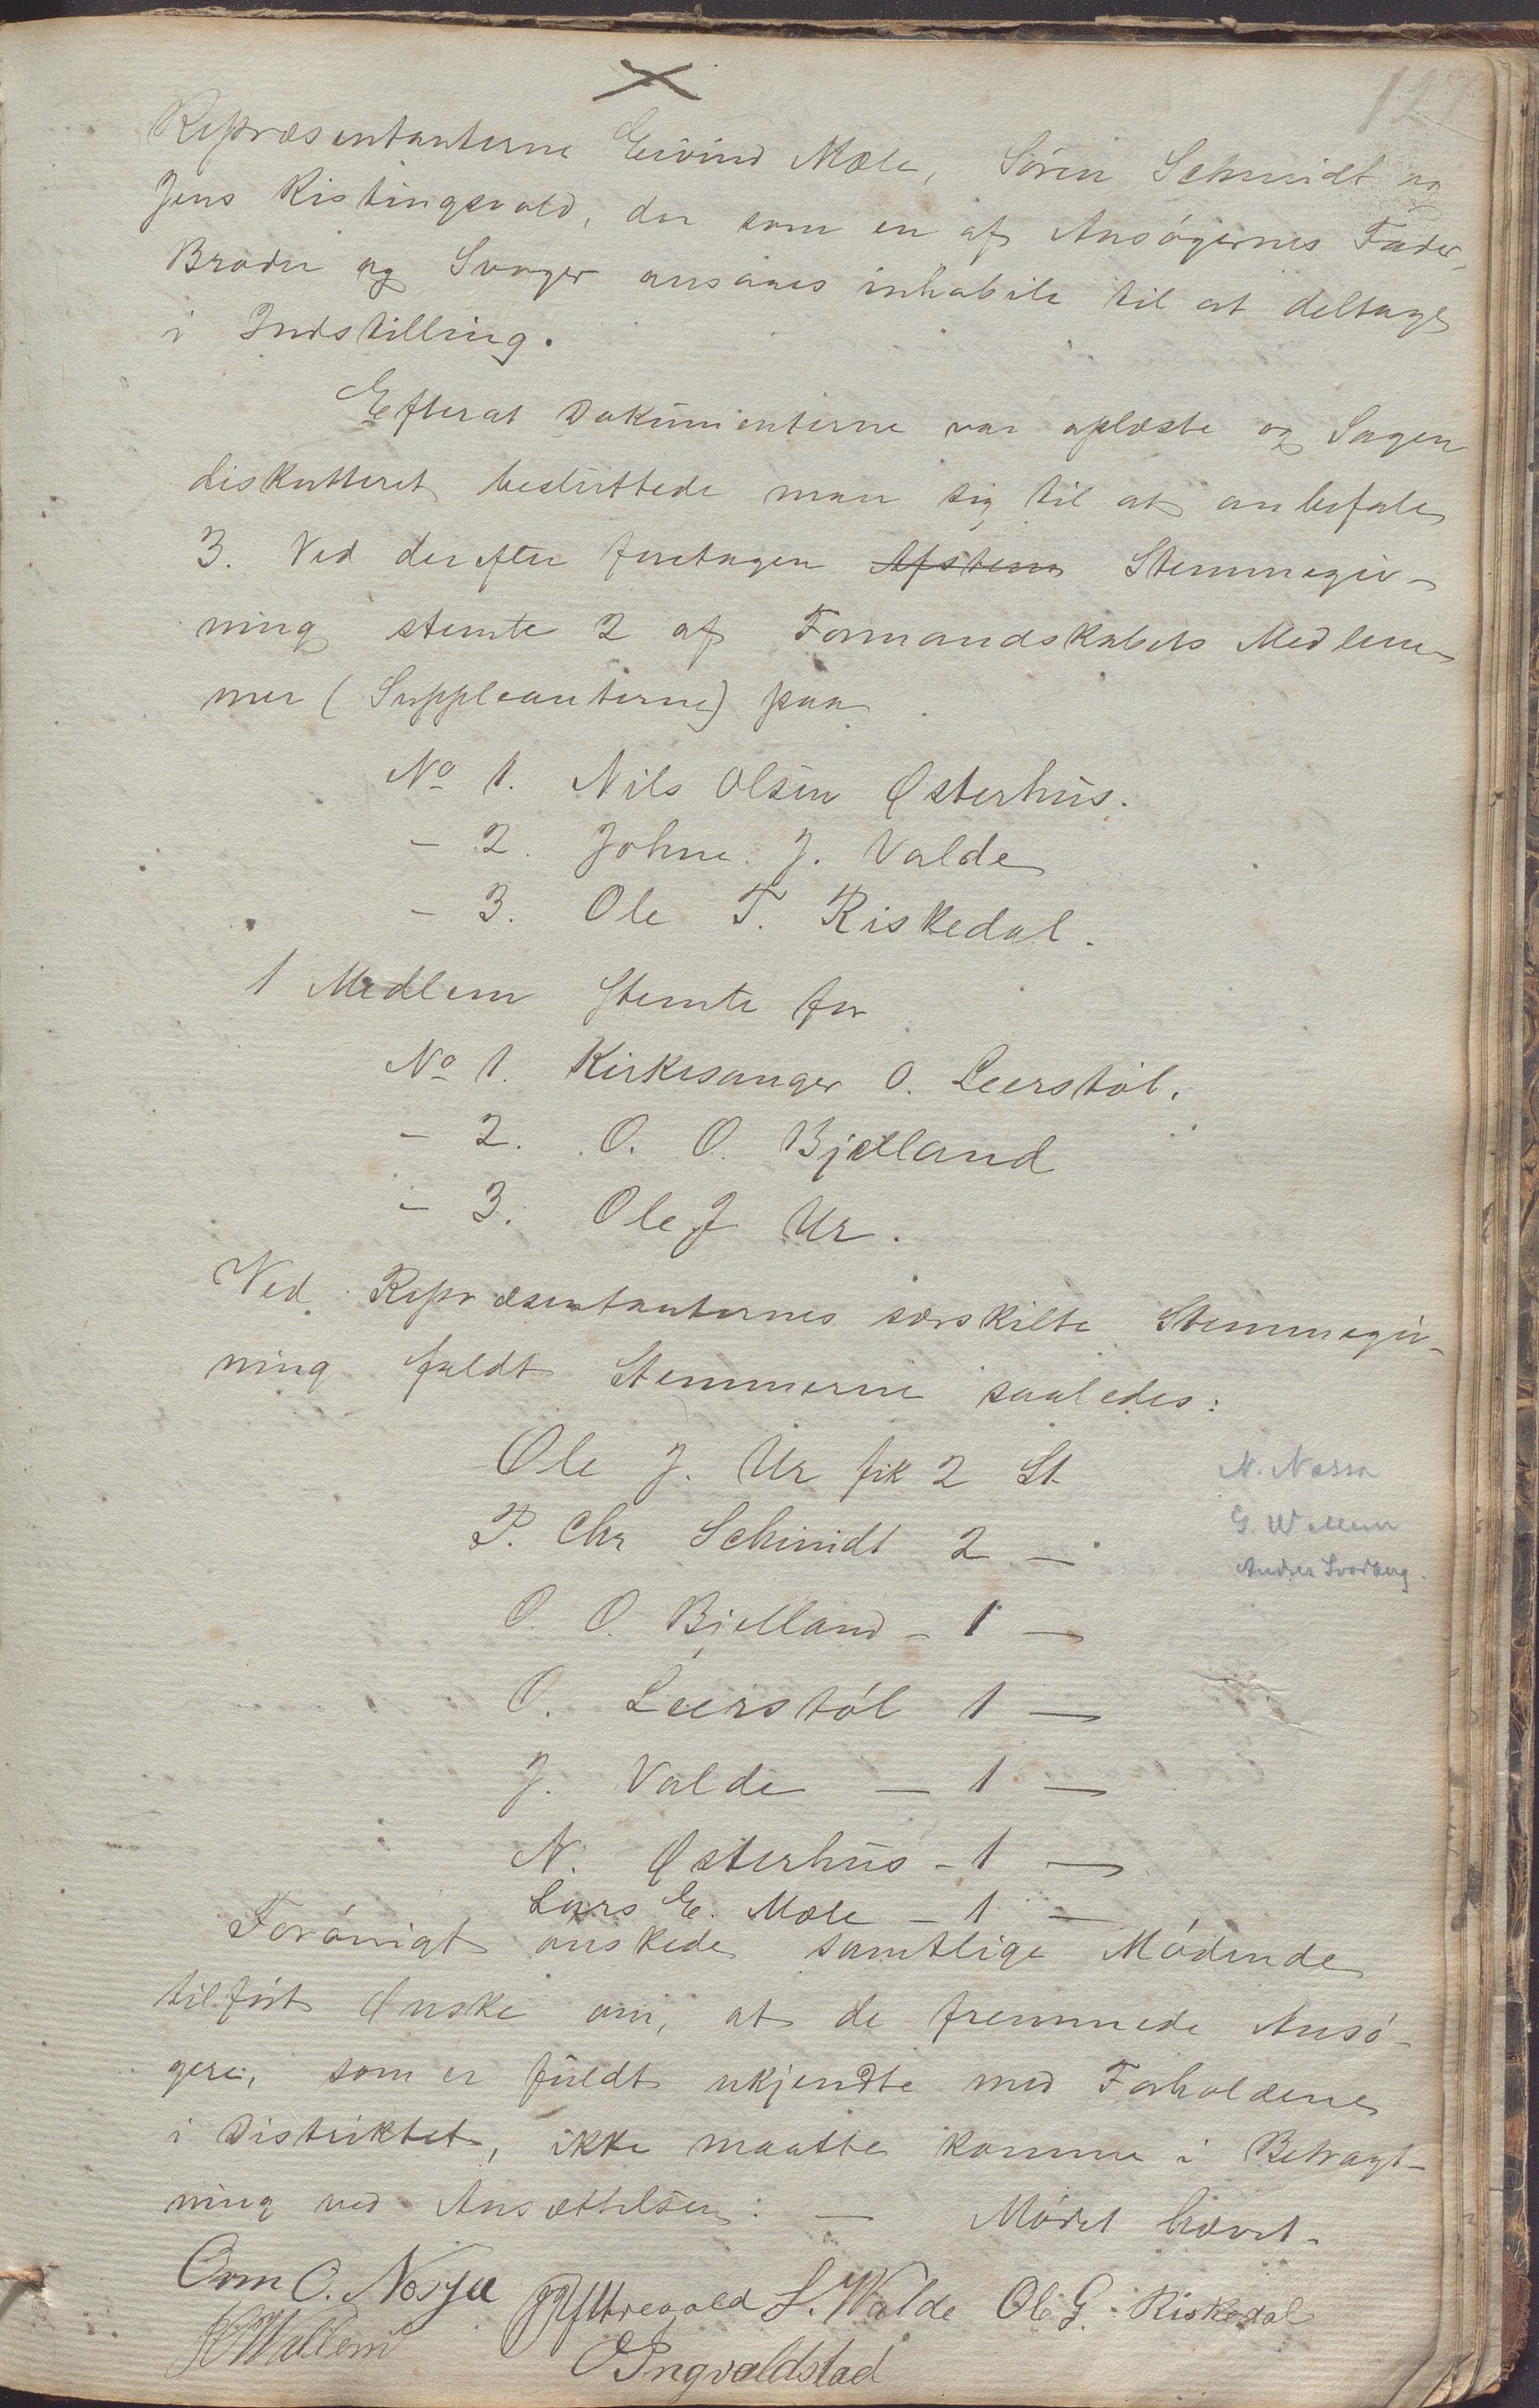 Repræsentanterne Eivind Mæle, Søren Schmidt og
Jens Ristingsvold, der som en af Ansøgernes Fader,
Broder og Svoger ansaaes inhabile til at deltage
i Indstilling.
Efterat Dokumenterne var oplæste og Sagen
diskutteret besluttede man sig til at anbefale
3. Ved derefter foretagen Afstem Stemmegiv-
ning stemte 2 af Formandskabets Medlem-
mer (Suppleanterne) paa
No 1. Nils Olsen Østerhus.
- 2. Johne J. Valde
- 3. Ole T. Riskedal.
1 Medlem stemte for
No 1. Kirkesanger O. Leerstøl.
- 2. O. O. Bjelland
- 3. Ole J Ur.
Ved Repræsentanternes særskilte Stemmegiv-
ning faldt Stemmerne saaledes:
Ole J. Ur fik 2 St.
P. Chr Schmidt 2 —
O. O. Bjelland - 1 —
O. Leerstøl 1 —
J. Valde — 1 —
N. Østerhus - 1 —
Lars E. Mæle - 1 —
N. Næssa
G. Wallem
Andres Svadberg.
Forøvrigt ønskede samtlige Mødende
tilført Ønske om, at de fremmede Ansø-
gere, som er fuldt ukjendte med Forholdene
i Distriktet, ikke maatte komme i Betragt-
ning ved Ansættelsen: — Mødet hævet.
Orm O. Nesja
L. Valde Ole G. Riskedal
Wallem
O Ingvaldstad